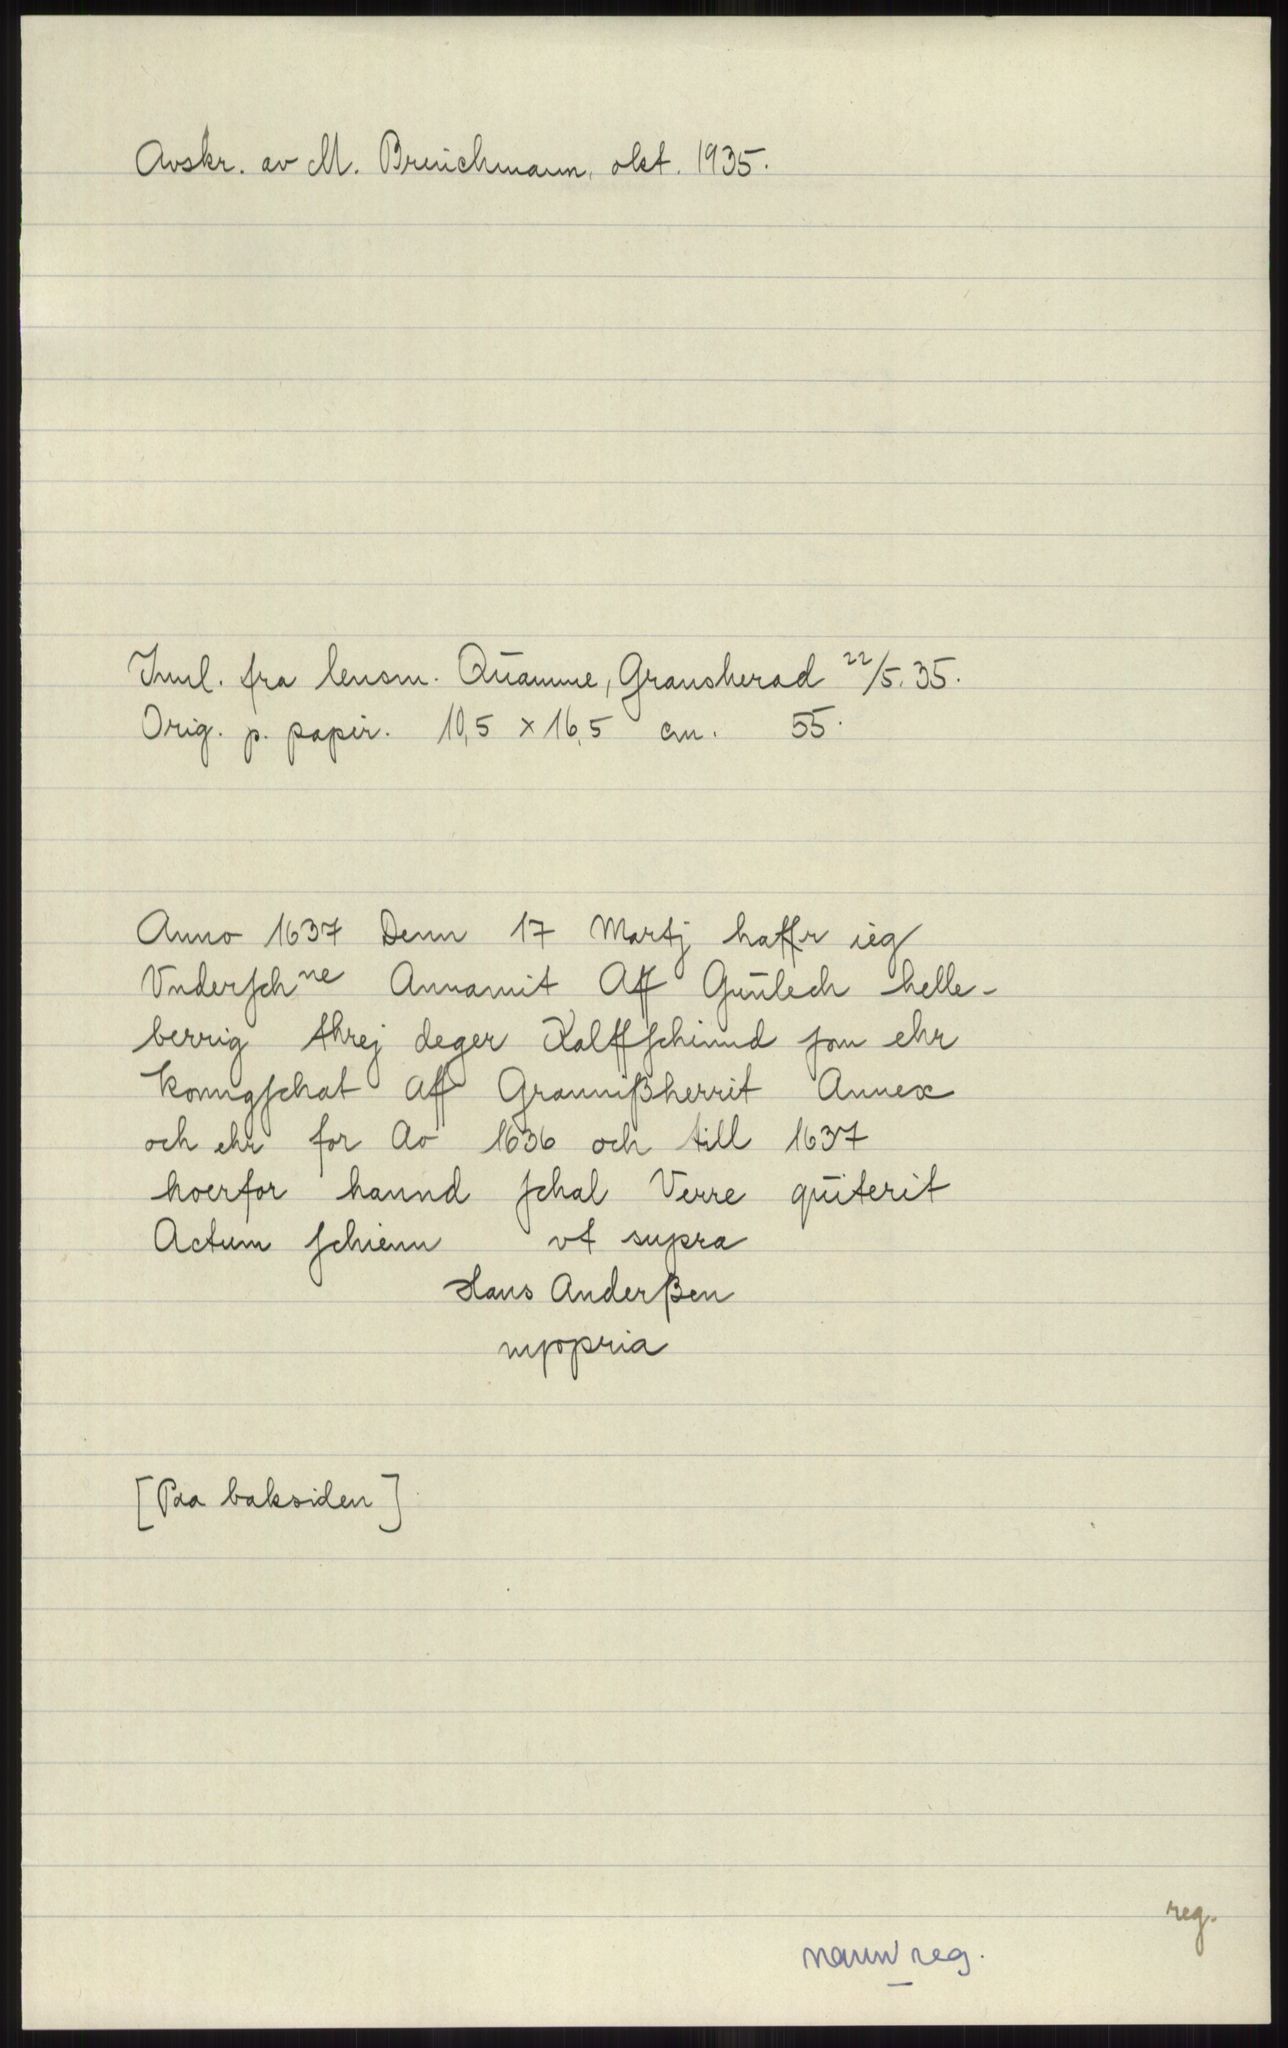 Avskr. av M. Brinichmann, okt. 1935.
Innl. fra lensm. Quamme, Gransherad 22/5. 35.
Orig. p. papir. 10,5 x 16,5 cm. 55.
Anno 1637 Denn 17 Martj haffr ieg
Vnderschne Annamit Aff Gunlech helle-
berrig threj deger Kalffschinnd som ehr
konngschat aff Grannißherrit Annex
och ehr for Ao 1636 och till 1637
hoerfor hannd schal Verre quiterit
Actum schienn vt supra
Hans Anderßen
mpopria
[Paa baksiden]
reg.
navn reg.